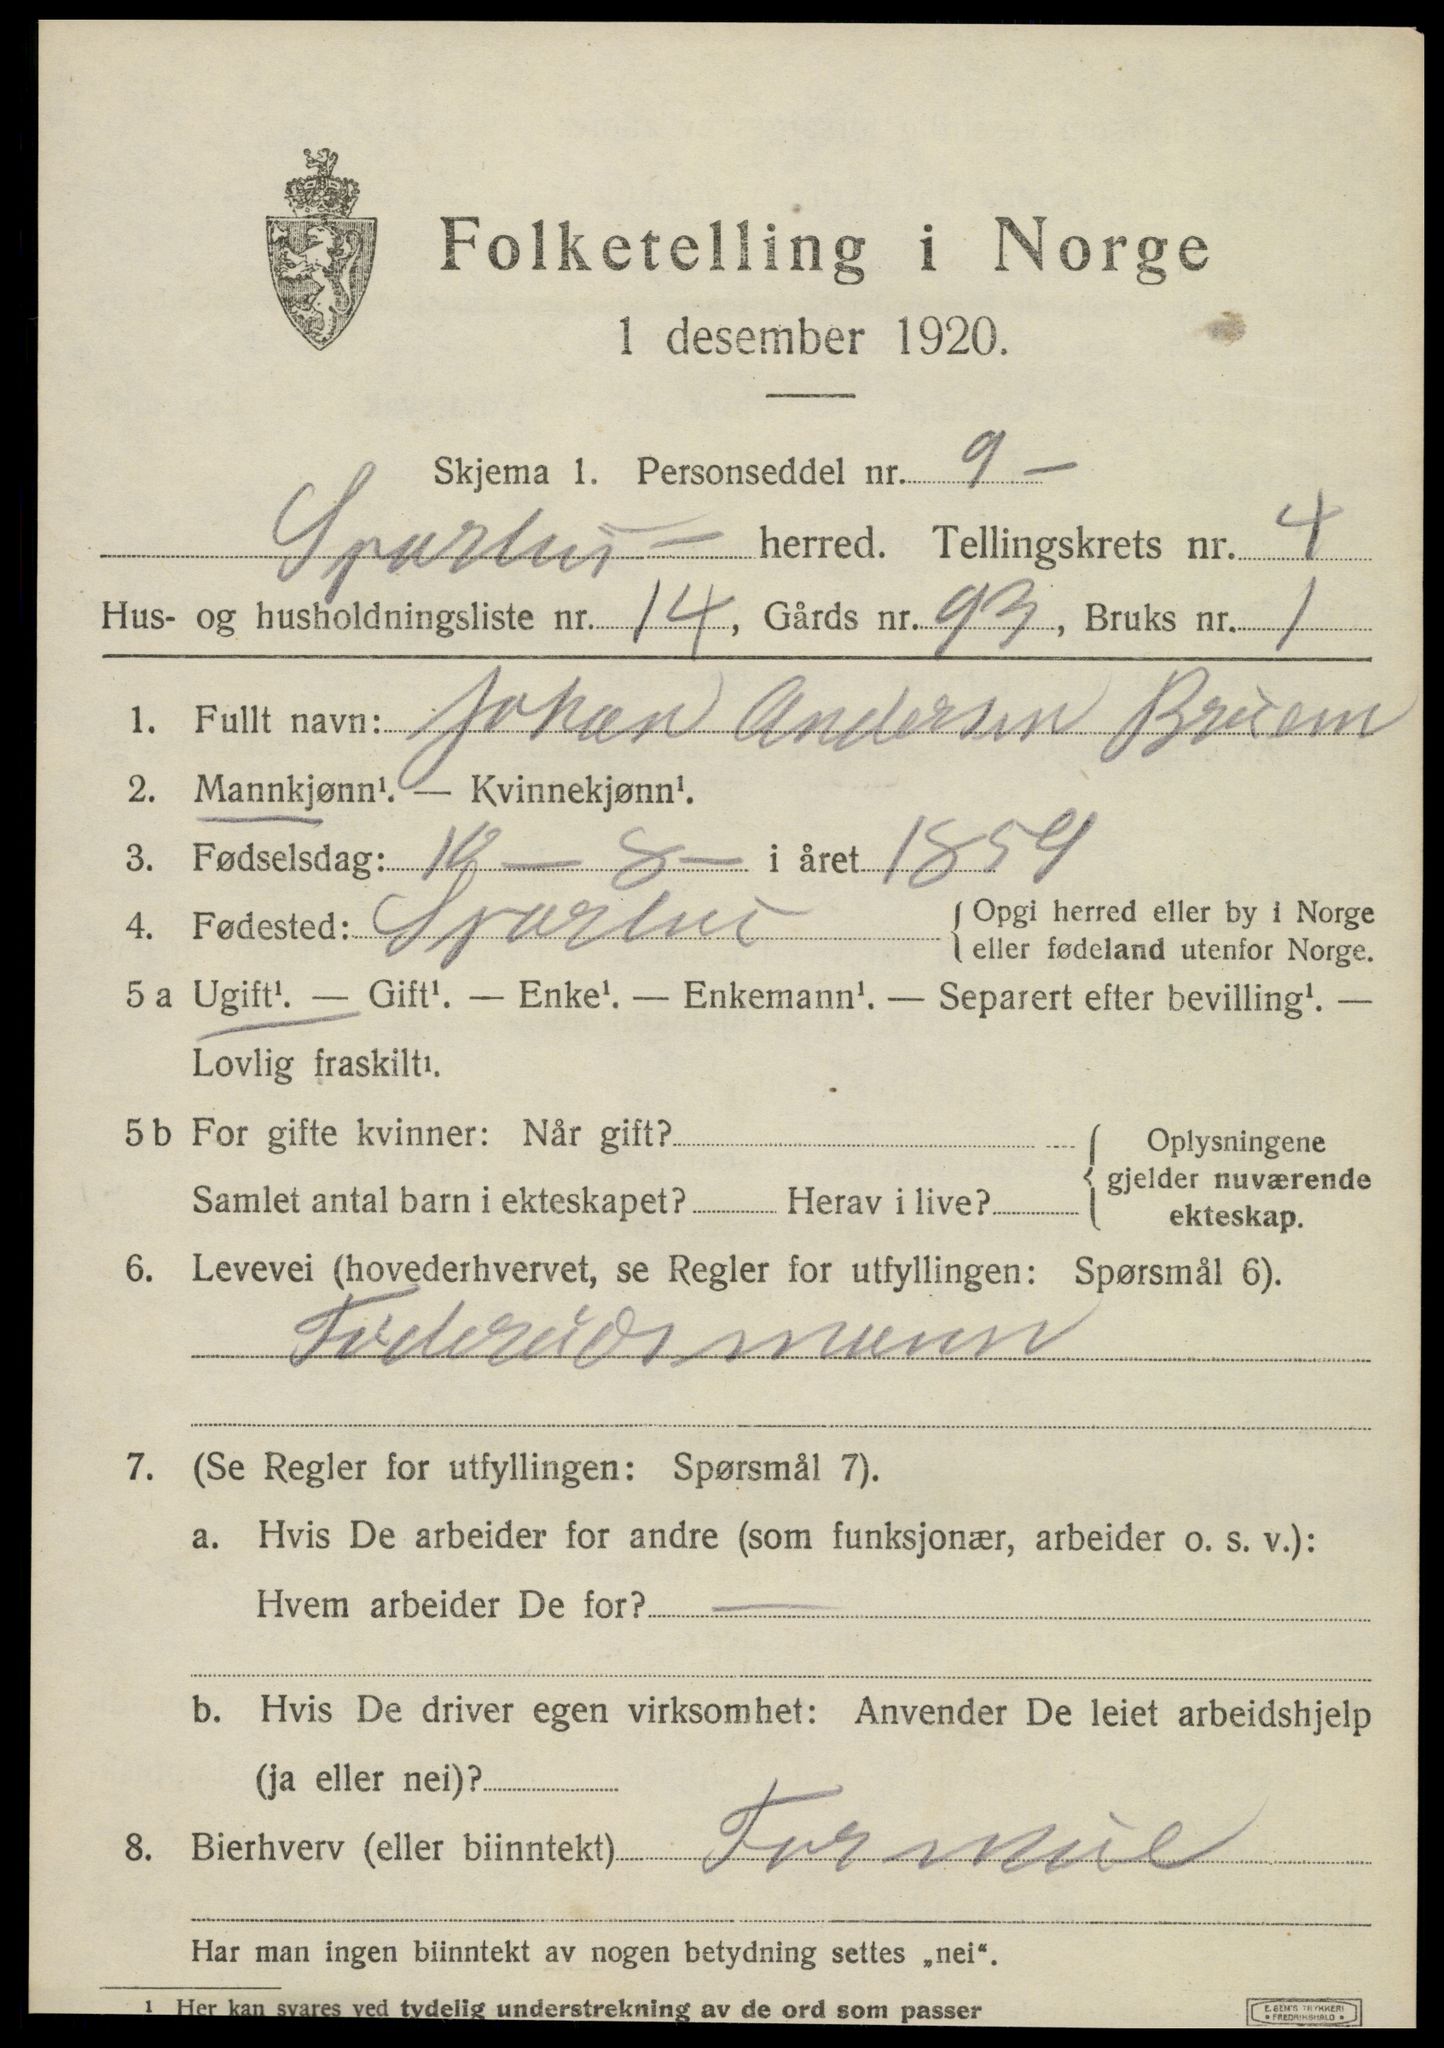 Folketelling i Norge
1 desember 1920.
Skjema 1. Personseddel nr. 9 —
Sparbu — herred. Tellingskrets nr. 4
Hus- og husholdningsliste nr. 14, Gårds nr. 93, Bruks nr. 1
1. Fullt navn: Johan Andersen
2. Mannkjønn¹. — Kvinnekjønn¹.
3. Fødselsdag: — 8 — i året 1859
4. Fødested: Sparbu { Opgi herred eller by i Norge
eller fødeland utenfor Norge.
5 a Ugift¹. — Gift¹. — Enke¹. — Enkemann¹. — Separert efter bevilling¹. —
Lovlig fraskilt¹.
5 b For gifte kvinner: Når gift? { Oplysningene
gjelder nuværende
Samlet antal barn i ekteskapet? Herav i live?
ekteskap.
6. Levevei (hovederhvervet, se Regler for utfyllingen: Spørsmål 6).
Føderådsmann
7. (Se Regler for utfyllingen: Spørsmål 7).
a. Hvis De arbeider for andre (som funksjonær, arbeider o. s. v.):
Hvem arbeider De for? —
b. Hvis De driver egen virksomhet: Anvender De leiet arbeidshjelp
(ja eller nei)?
8. Bierhverv (eller biinntekt) Formue
Har man ingen biinntekt av nogen betydning settes „nei“.
¹ Her kan svares ved tydelig understrekning av de ord som passer
E. SEM'S TRYKKERI
FREDRIKSHALD